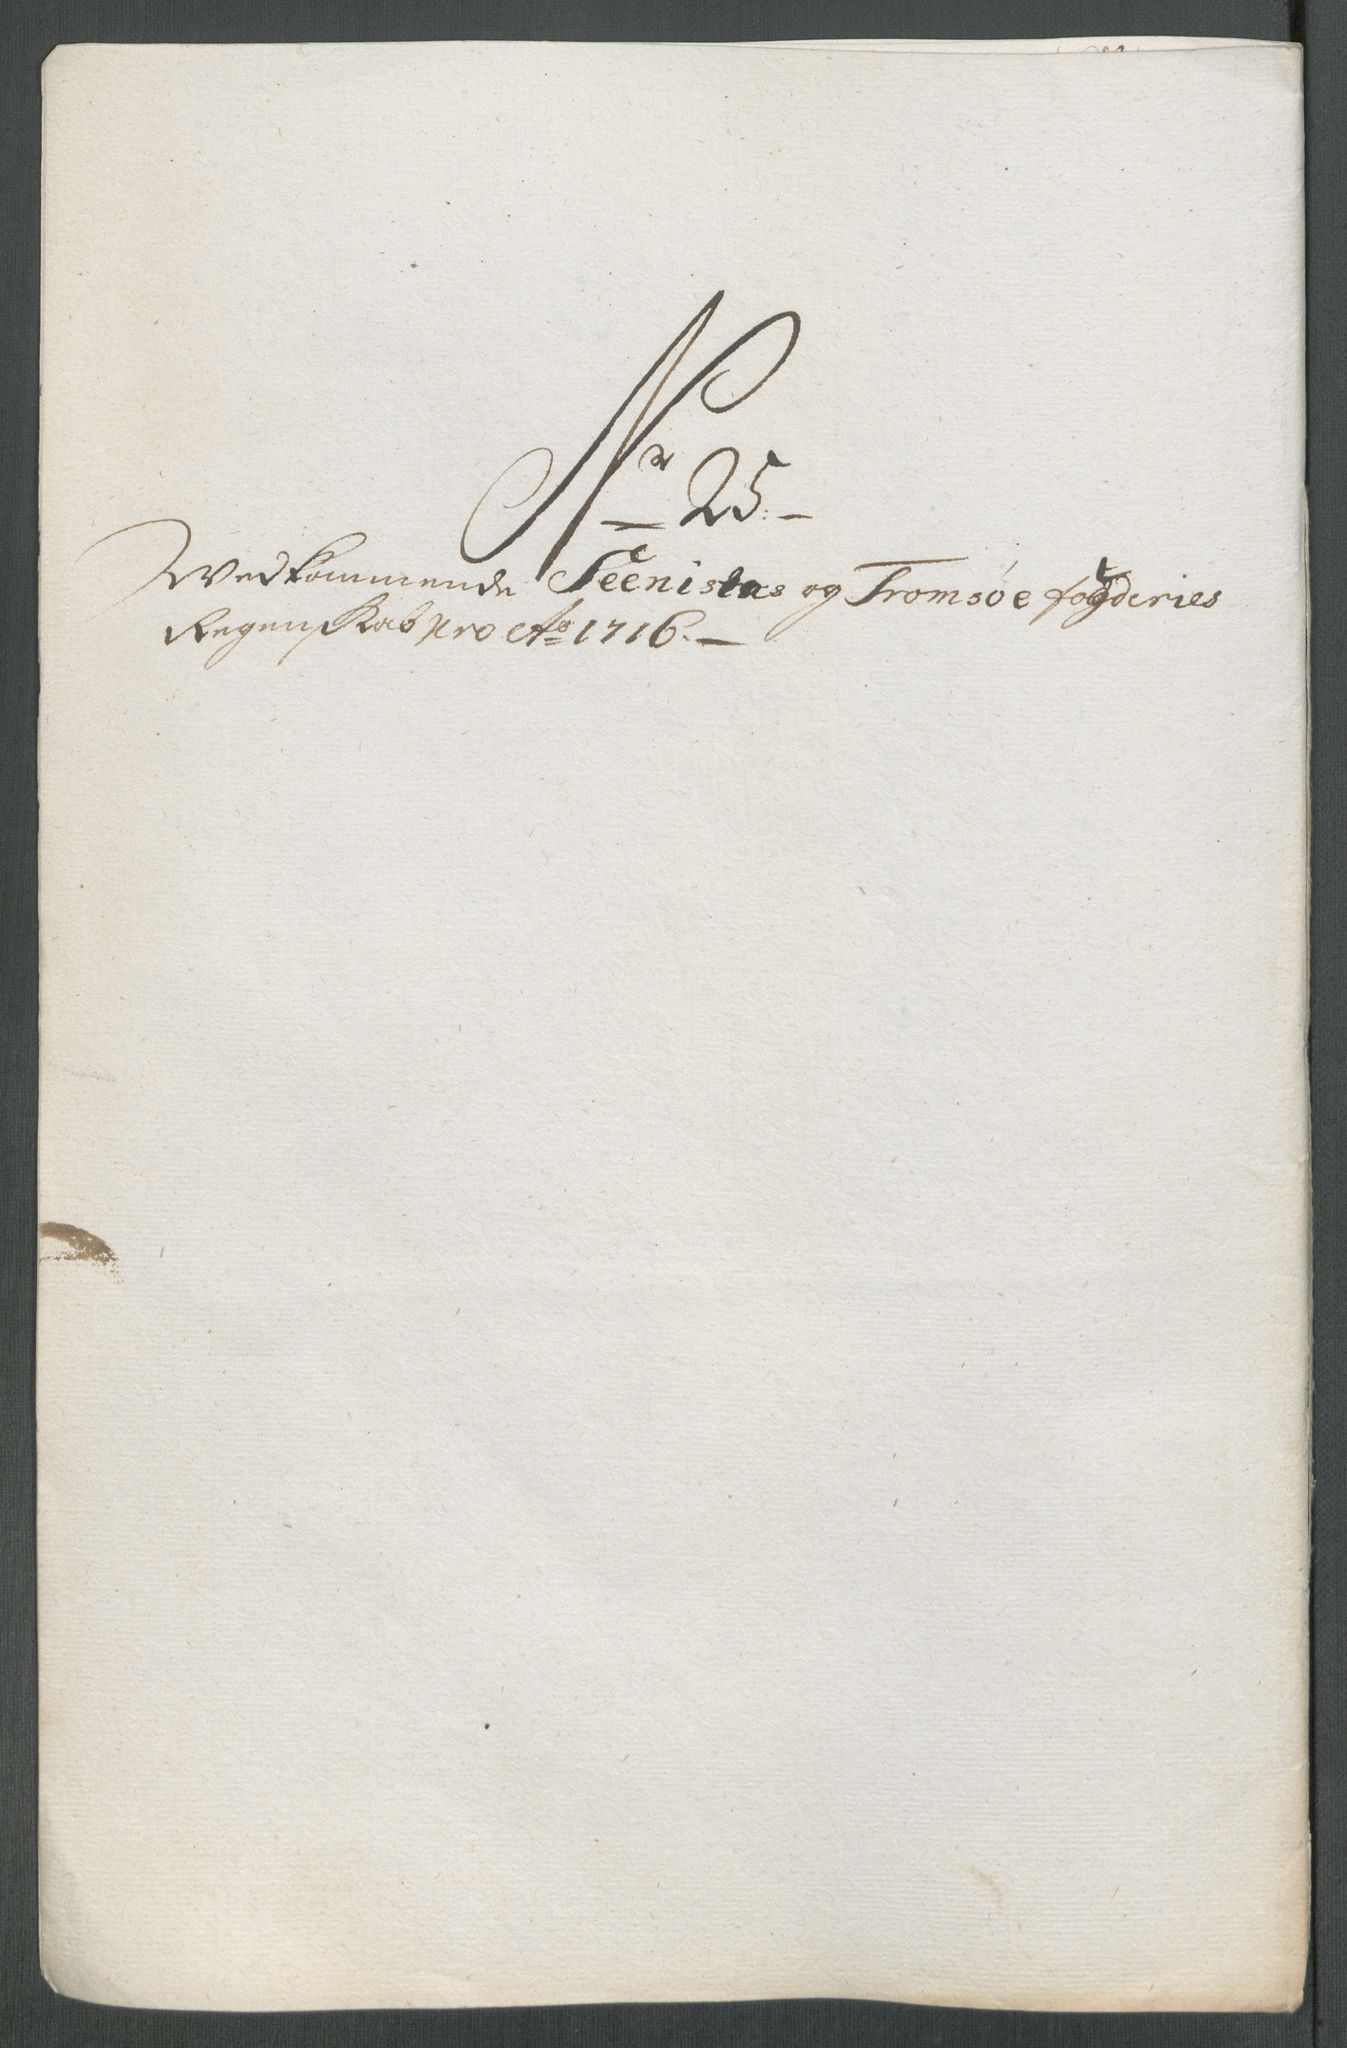 Nr 25.
Wedkommende Seeniens og Tromsøe fogderies
Regenskab pro Ao 1716.